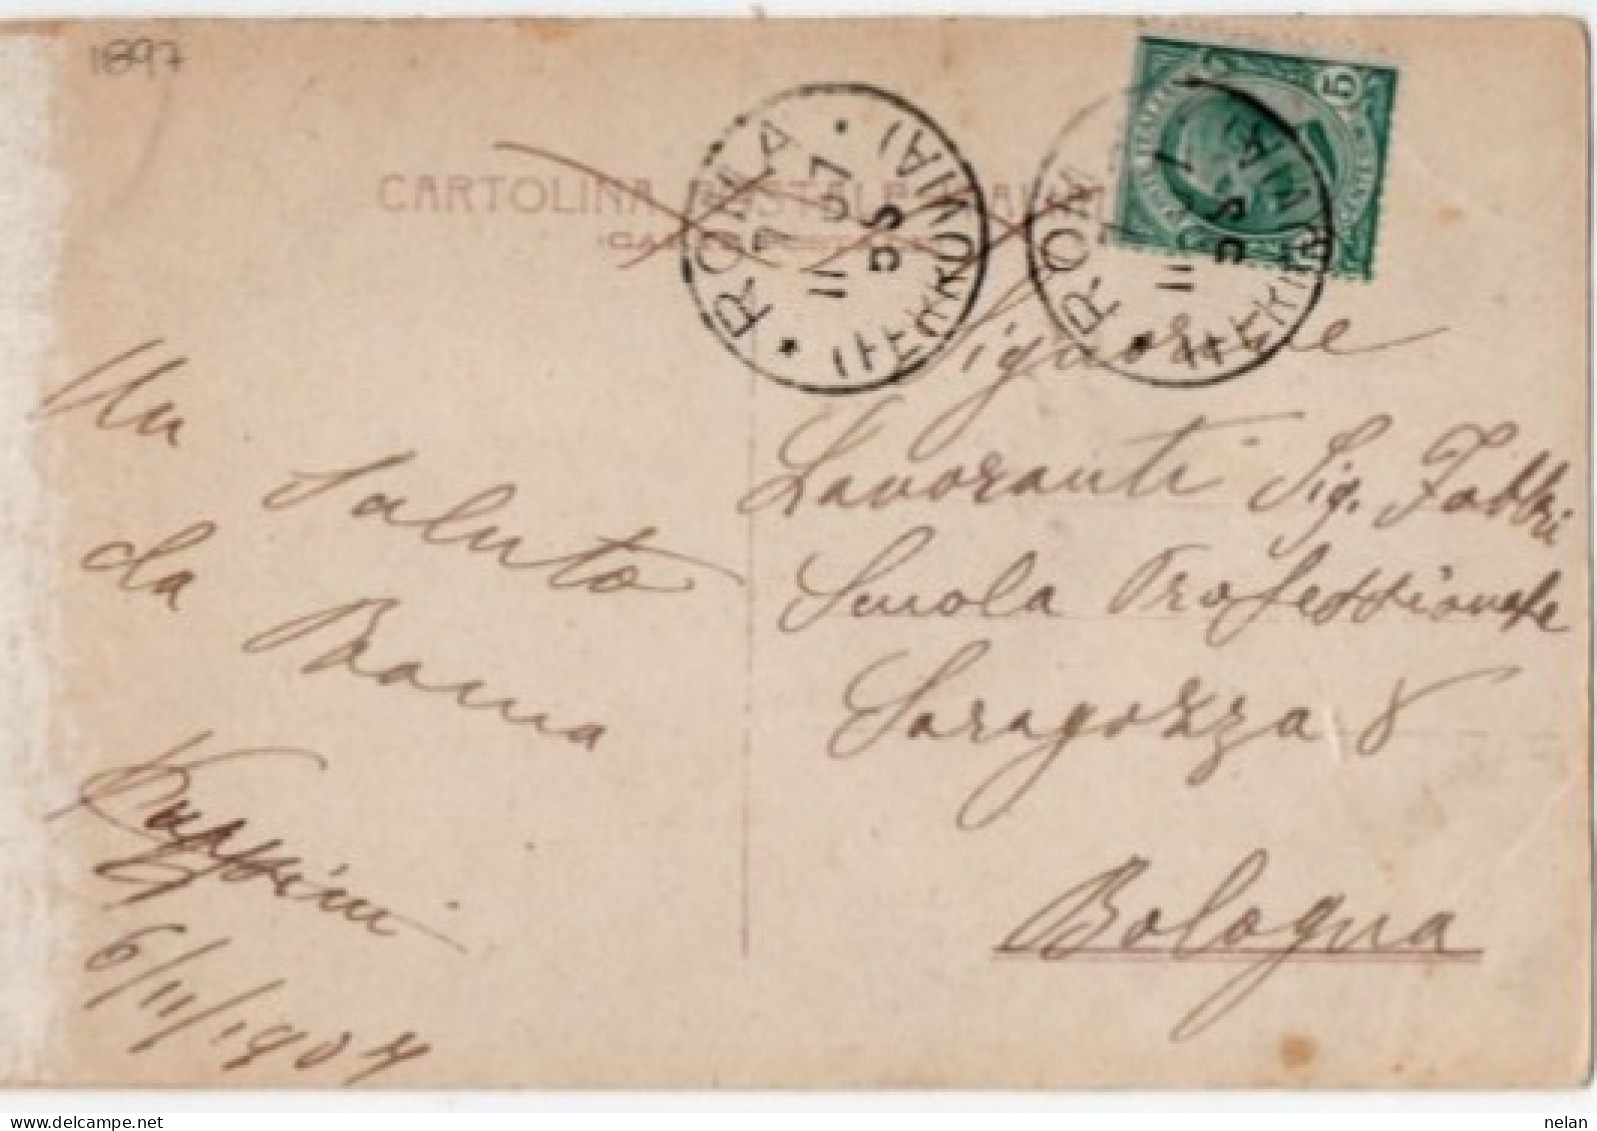 1897
CARTOLINA POSTALE
ROMA
(FERROVIA)
7 11 07
5S
ROMA
(FERROVIA)
11
5S
5
Un saluto
da Roma
6/11/1907
Signorine
Lavoranti Sig. Fabbri
Scuola Professionale
Saragozza 8
Bologna
delcampe.net
nelan